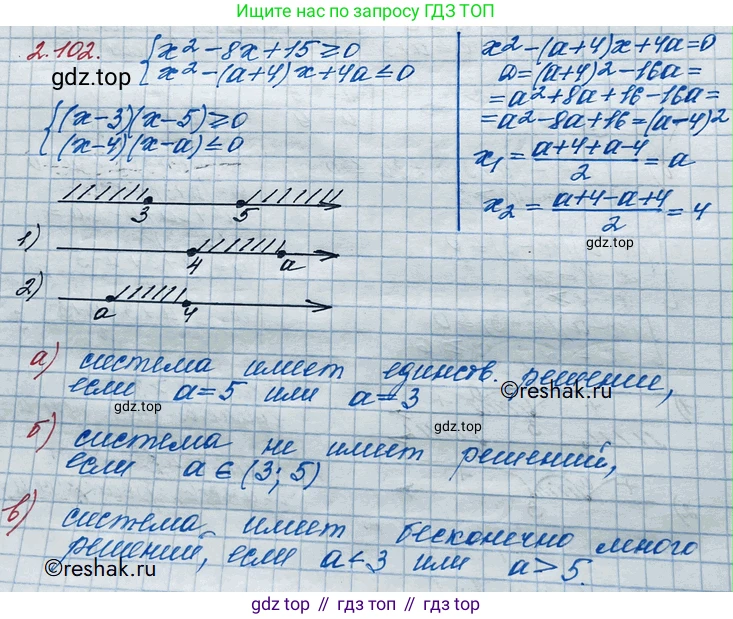 Ищите нас по запросу ГДЗ ТОП
2.102. {x² - 8x + 15 ≥ 0
{x² - (a+4)x + 4a ≤ 0
gdz.top
{(x-3)(x-5) ≥ 0
{(x-4)(x-a) ≤ 0
x² - (a+4)x + 4a = 0
D = (a+4)² - 16a =
= a² + 8a + 16 - 16a =
= a² - 8a + 16 = (a-4)²
x₁ = (a+4+a-4)/2 = a
x₂ = (a+4-a+4)/2 = 4
gdz.top
3 5
1) 4 a
2) a 4
а) система имеет единств. решение,
если a = 5 или a = 3
©reshak.ru
gdz.top
б) система не имеет решений,
если a ∈ (3; 5)
gdz.top
в) система имеет бесконечно много
решений, если a < 3 или a > 5.
©reshak.ru
©reshak.ru
gdz top // гдз топ // gdz.top